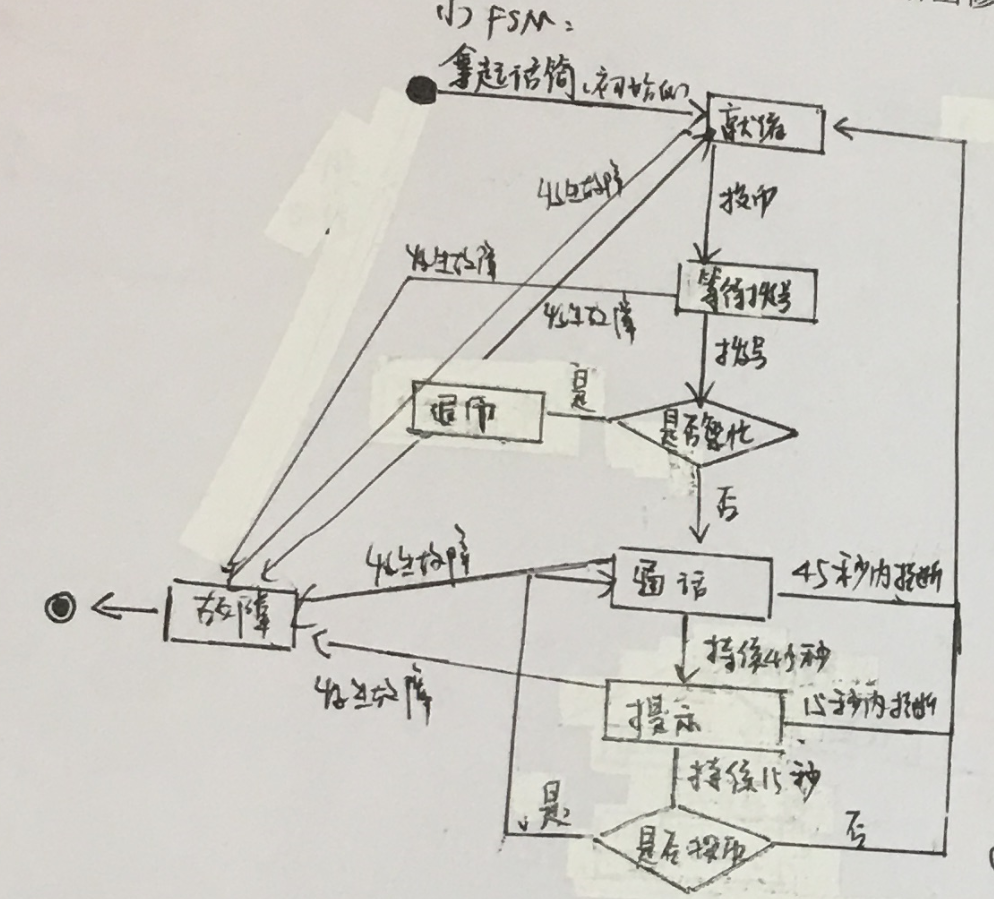 (1) FSM:
拿起话筒(初始化)
就绪
发生故障
投币
发生故障
等待拨号
发生故障
拨号
退币
是
是否繁忙
否
发生故障
通话
45秒内挂断
故障
持续45秒
发生故障
提示
15秒内挂断
持续15秒
是
是否投币
否